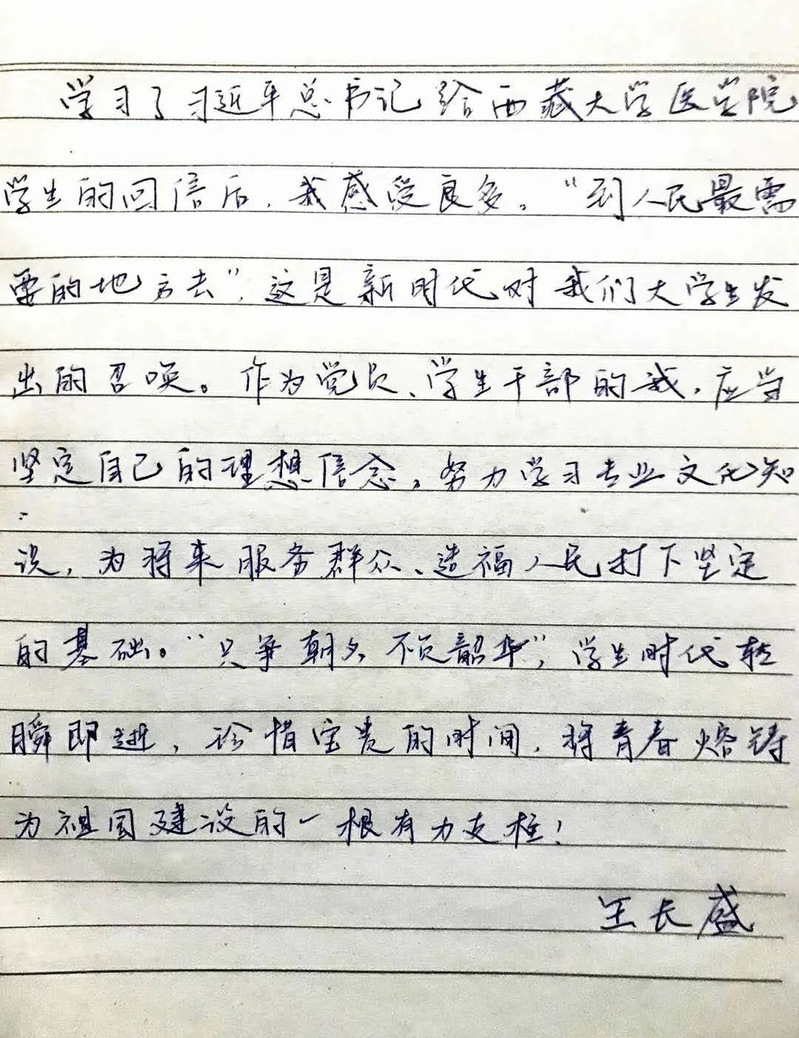 学习了习近平总书记给西藏大学医学院
学生的回信后，我感受良多。“到人民最需
要的地方去”，这是新时代对我们大学生发
出的召唤。作为党员、学生干部的我，应当
坚定自己的理想信念，努力学习专业文化知
识，为将来服务群众、造福人民打下坚定
的基础。“只争朝夕，不负韶华”，学生时代转
瞬即逝，珍惜宝贵的时间，将青春熔铸
为祖国建设的一根有力支柱！
王长盛